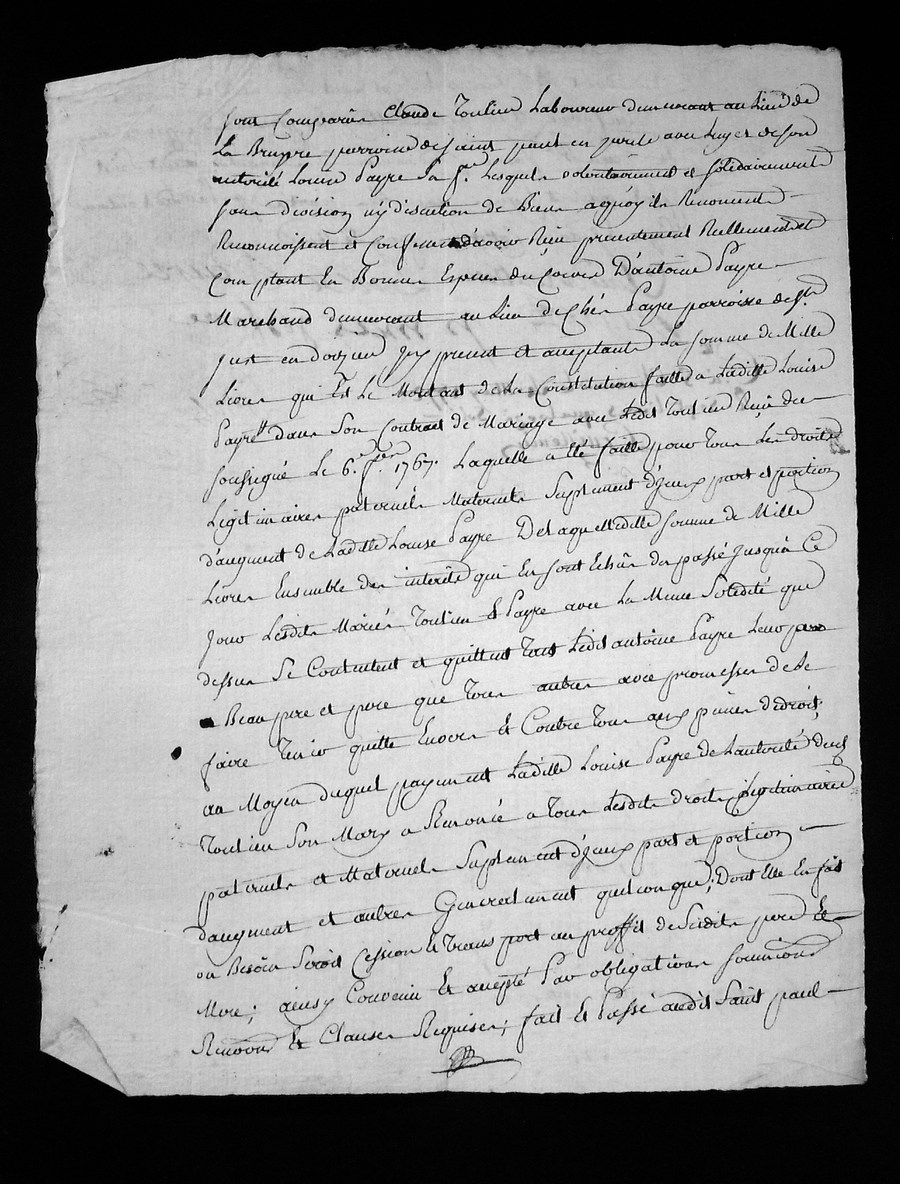 sont Comparu Claude Toulieu Laboureur demeurant au Lieu de
La Bruyre parroisse de saint paul en jarest avec luy et de son
autorité Louise Payre sa f.e Lesquels volontairement et solidairement
sans division ny discution de Biens a quoy ils Renoncent
Reconnoissent et Confessent d'avoir Reçu presentement Reellement et
Comptant En Bonnes Especes du Cours D'antoine Payre
Marchand demeurant au Lieu de Chés Payre parroisse de St
just en doizieu Icy present et aceptant La somme de Mille
Livres qui Est Le Montant de La Constitution faitte a Laditte Louise
Payre dans Son Contrat de Mariage avec Ledit Toulieu Reçu du
soussigné Le 6.e 1767. Laquelle a Eté faitte pour Tous Les droits
Legitimaires paternels Maternels Suplement d'yceux part et portion
d'augment de Laditte Louise Payre De Laquelle ditte somme de Mille
Livres Ensemble des interets qui En sont Echûs du passé Jusqu'a Ce
Jour Lesdits Mariés Toulieu et Payre avec La Meme Solidité que
dessus Se Contentent et quittent Tant Ledit antoine Payre Leur
Beau pere et pere que Tous autres avec promesses de Le
faire Tenir quitte Envers Et Contre Tous aux peines de droit;
au Moyen duquel payement Laditte Louise Payre de Lautorité dud.
Toulieu Son Mary a Renoncé a Tous Lesdits droits Legitimaires
paternels et Maternels Suplement d'yceux part et portion
daugment et autres Generalement quelconque; Dont Elle En fait
ou Besoin Seroit Cession et Transport au proffit de Sesdits pere et
Mere; ainsy Convenu Et accepté Par obligations soumissions
Renons Et Clauses Requises; fait Et Passé audit Saint paul